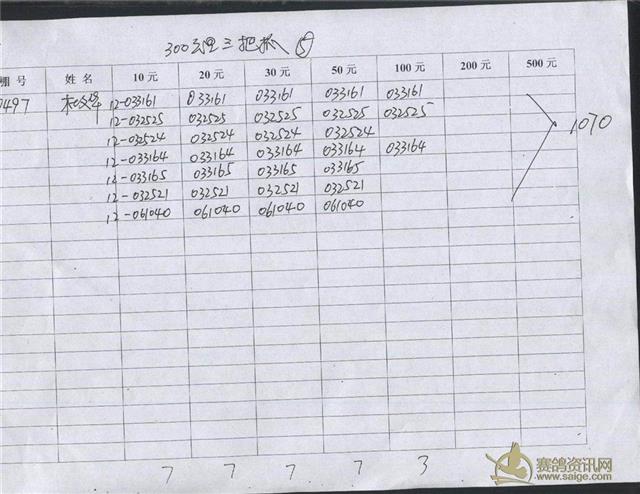 300公里三把抓 ⑤
棚号 姓名 10元 20元 30元 50元 100元 200元 500元
0497 12-033161 033161 033161 033161 033161
12-032525 032525 032525 032525 032525
12-032524 032524 032524 032524
12-033164 033164 033164 033164 033164
12-033165 033165 033165 033165
12-032521 032521 032521 032521
12-061040 061040 061040 061040
1070
7 7 7 7 3
赛鸽资讯网
www.saige.com